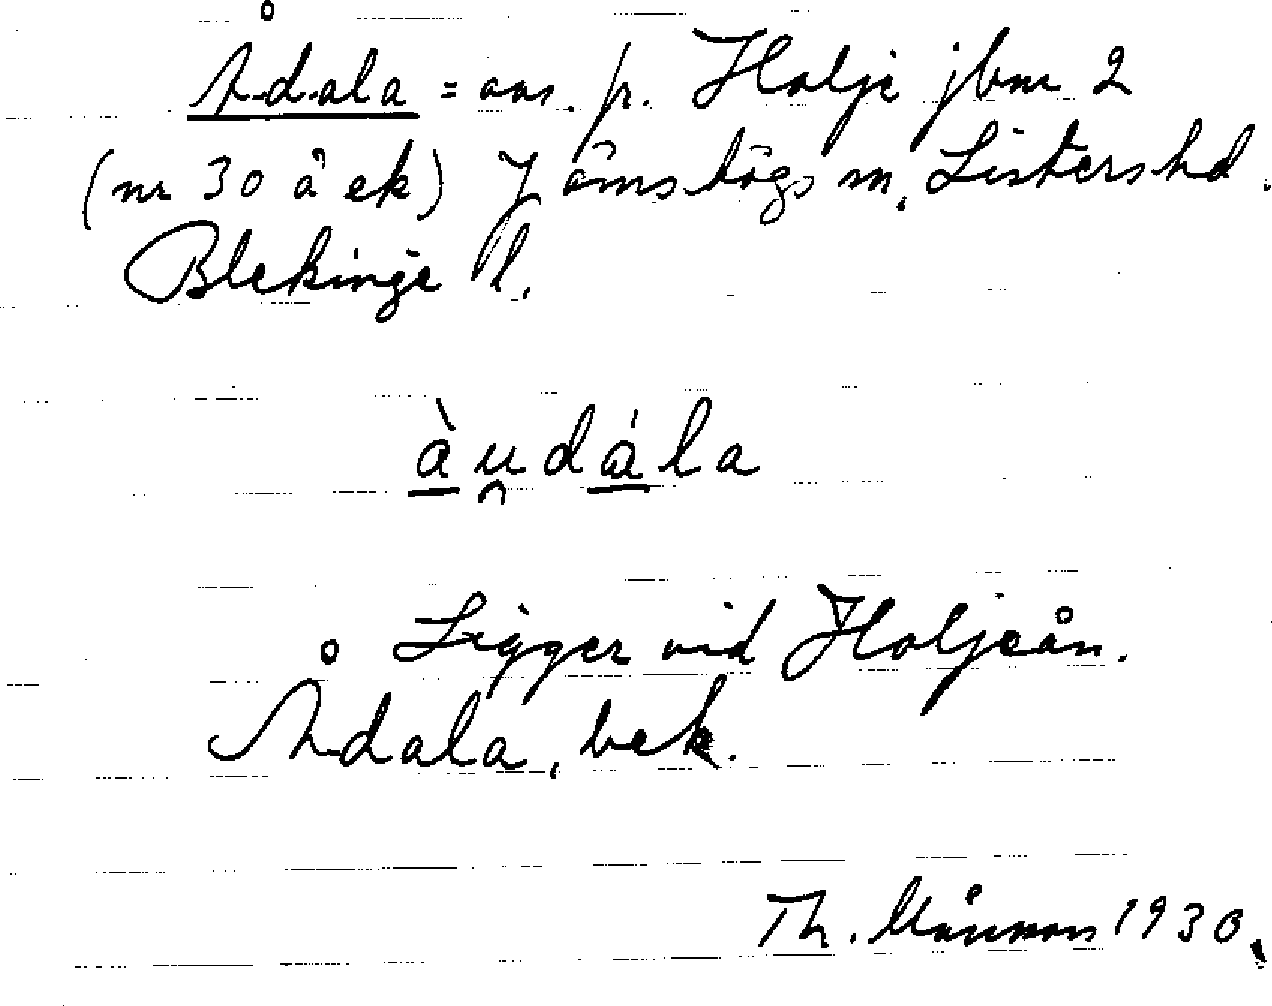 Ådala = avs. fr. Holje jbnr 2
(nr 30 å ek) Jämshögs sn, Listers hd.
Blekinge l.
àu̯dála
Ligger vid Holjeån.
Ådala, bek.
Th. Månsson 1930.